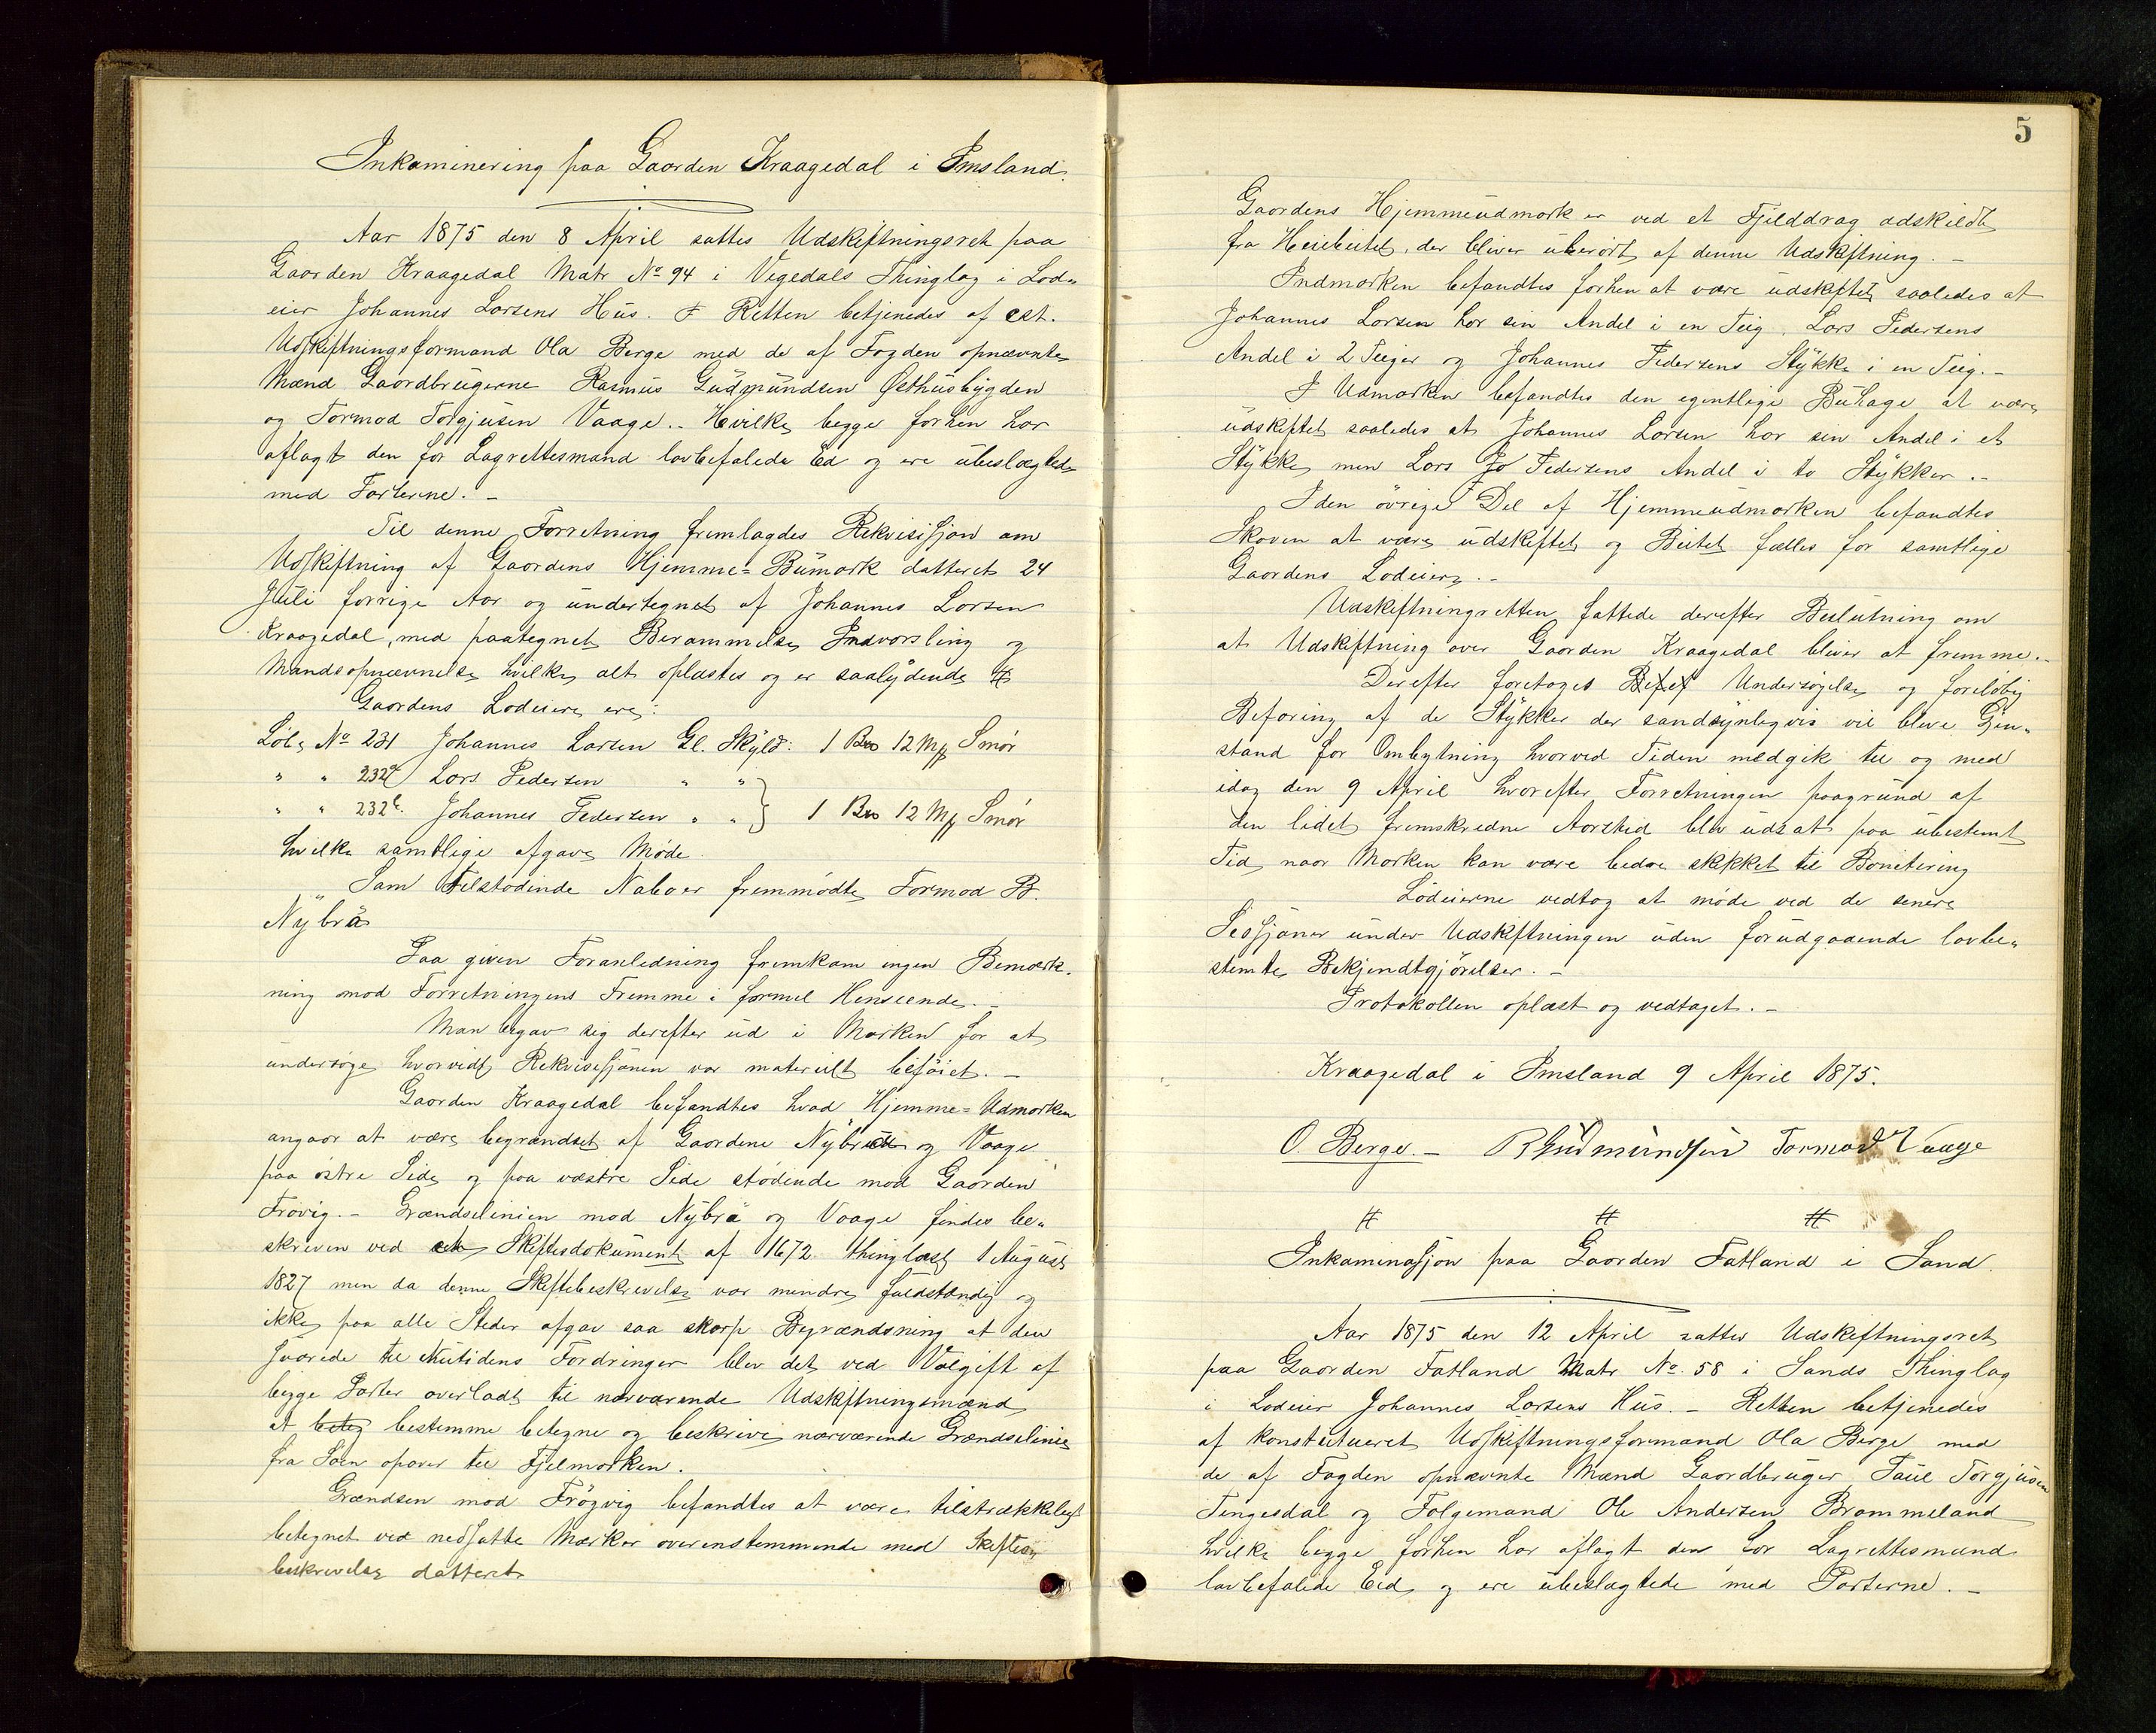 Inkaminering paa Gaarden Kraagedal i Imsland.
Aar 1875 den 8 April sattes Udskiftningsret paa
Gaarden Kraagedal Matr No 94 i Vegedals Thinglag i Lod„
eier Johannes Larsens Hus. Retten betjenedes af cst.
Udskiftningsformand Ola Berge med de af Fogden opnævnte
Mænd Gaardbrugerne Rasmus Gudmundsen Østhusbygden
og Tormod Torgjusen Vaage.- Hvilke begge forhen har
aflagt den for Lagrettesmænd lovbefalede Ed og ere ubeslægtede
med Parterne. -
Til denne Forretning fremlagdes Rekvisisjon om
Udskiftning af Gaardens Hjemme= Bumark datteret 24
Juli forrige Aar og undertegnet af Johannes Larsen
Kraagedal, med paategnet Berammelse Indvarsling og
Mandsopnævnelse hvilke alt oplæstes og er saalydende #
Gaardens Lodeiere ere:
Løb. No 231 Johannes Larsen Gl. Skyld: 1 12 Smør
„ „ 232a Lars Pedersen „ „
„ „ 232b. Johannes Pedersen „ „ } 1 12 Smør
hvilke samtlige afgave Møde.
Som tilstødende Naboer fremmødte Tormod B.
Nybrä
Paa given Foranledning fremkom ingen Bemærk„
ning mod Forretningens Fremme i formel Henseende. -
Man begav sig derefter ud i Marken for at
undersøge hvorvidt Rekvisisjonen var materielt beføiet. -
Gaarden Kraagedal befandtes hvad Hjemme= Udmarken
angaar at være begrændset af Gaardene og Vaage
paa østre Side og paa væstre Side stødende mod Gaarden
Frøvig. - Grændselinien mod Nybrä og Vaage findes be„
skreven ved et Skiftesdokument af 1672 thinglæst 1 August
1827 men da denne Skiftebeskrivelse var mindre fuldstændig og
ikke paa alle Steder afgav saa skarp Begrændsning at den
svarede til Nutidens Fordringer blev det ved Valgift af
begge Parter overladt til nærværende Udskiftningsmænd
at beteg bestemme betegne og beskrive nærværende Grændselinie
fra Søen opover til Fjelmarken.
Grændsen mod Frøgvig befandtes at være tilstrækkeligt
betegnet ved nedsatte Mærker overenstemmende med Skiftes„
beskrivelse datteret
5
Gaardens Hjemmeudmark er ved et Fjelddrag adskildt
fra Heiebeitet, der bliver uberørt af denne Udskiftning. -
Indmarken befandtes forhen at være udskiftet saaledes at
Johannes Larsen har sin Andel i en Teig. Lars Pedersens
Andel i 2 Teiger og Johannes Pedersens Stykke i en Teig.-
I Udmarken befandtes den egentlige Buhage at være
udskiftet saaledes at Johannes Larsen har sin Andel i et
Stykke, men Lars Jo Pedersens Andel i to Stykker.-
I den øvrige Del af Hjemmeudmarken befandtes
Skoven at være udskiftet og Beitet fælles for samtlige
Gaardens Lodeiere.-
Udskiftningsretten fattede derefter Beslutning om
at Udskiftning over Gaarden Kraagedal bliver at fremme.-
Derefter foretoges Befef Undersøgelse og foreløbig
Befaring af de Stykker der sandsynligvis vil bleve Gjen„
stand for Ombytning hvorved Tiden medgik til og med
idag den 9 April hvorefter Forretningen paagrund af
den lidet fremskredne Aarstid blev udsat paa ubestemt
Tid naar Marken kan være bedre skikket til Bonitering
Lodeierne vedtog at møde ved de senere
Sessjoner under Udskiftningen uden forudgaaende lovbe„
stemte Bekjendtgjørelser. -
Protokollen oplæst og vedtaget. -
Kraagedal i Imsland 9 April 1875.
O. Berge. - R Gudmundsen Tormod Vaage
# # #
Inkaminasjon paa Gaarden Fatland i Sand.
Aar 1875 den 12 April sattes Udskiftningsret
paa Gaarden Fatland Matr No. 58 i Sands Thinglag
i Lodeier Johannes Larsens Hus. - Retten betjenedes
af konstitueret Udskiftningsformand Ola Berge med
de af Fogden opnævnte Mænd Gaardbruger Paul Torgjusen
Tingesdal og Følgemand Ole Andersen Brommeland
hvilke begge forhen har aflagt den for Lagrettesmænd
lovbefalede Eed og ere ubeslægtede med Parterne. -